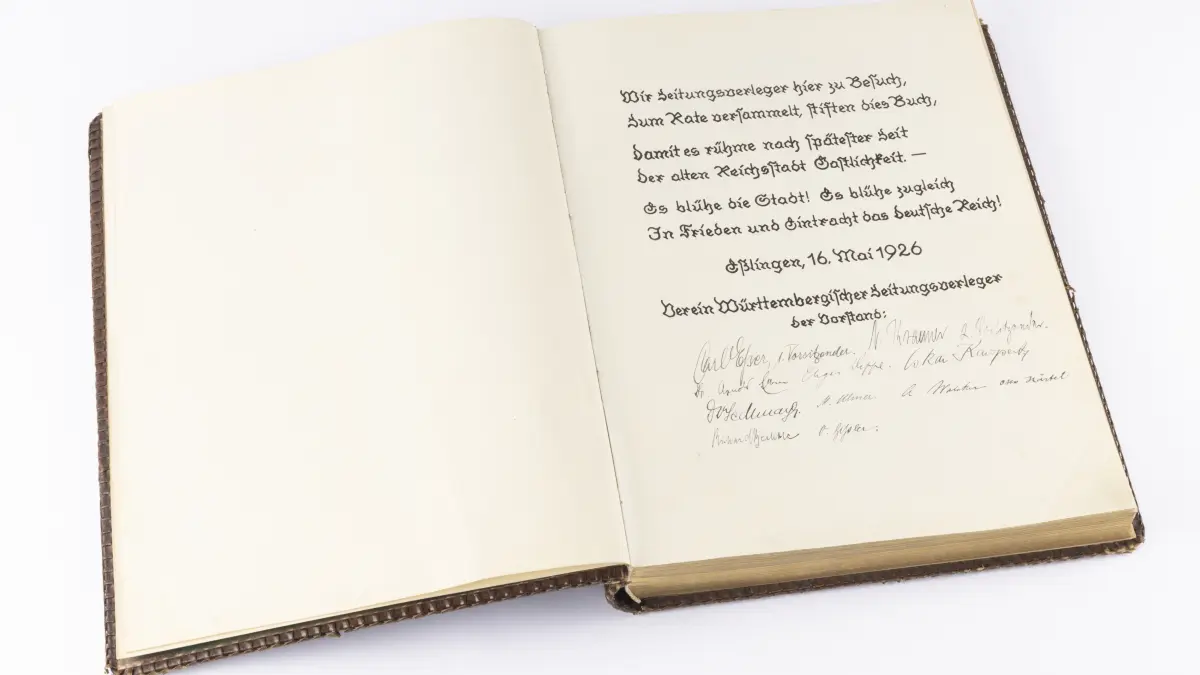 Wir Zeitungsverleger hier zu Besuch,
Zum Rate versammelt, stiften dies Buch,
Damit es rühme nach spätester Zeit
Der alten Reichsstadt Gastlichkeit. —
Es blühe die Stadt! Es blühe zugleich
In Frieden und Eintracht das Deutsche Reich!
Eßlingen, 16. Mai 1926
Verein Württembergischer Zeitungsverleger
der Vorstand:
Carl 1. Vorsitzender. 2. Vorsitzender.
Dr.